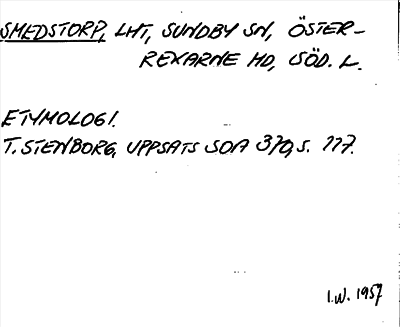 SMEDSTORP, LHT, SUNDBY SN, ÖSTER-
REKARNE HD, SÖD. L.
ETYMOLOGI.
T. STENBORG, UPPSATS SOA 370, S. 117.
I.W. 1957